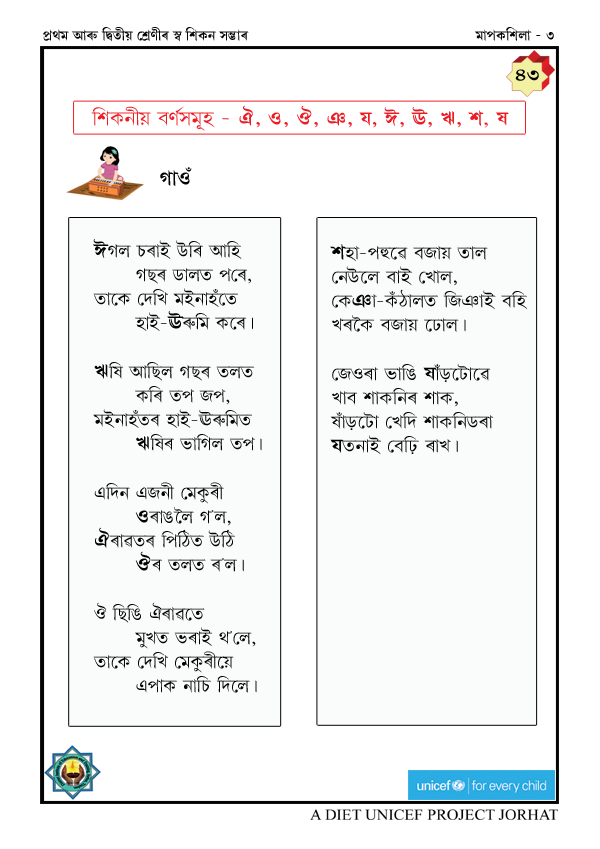 প্ৰথম আৰু দ্বিতীয় শ্ৰেণীৰ স্ব শিকন সম্ভাৰ
মাপকশিলা - ৩
৪৩
শিকনীয় বৰ্ণসমূহ - ঐ, ও, ঔ, ঞ, য, ঈ, ঊ, ঋ, শ, ষ
গাওঁ
ঈগল চৰাই উৰি আহি
গছৰ ডালত পৰে,
তাকে দেখি মইনাহঁতে
হাই-ঊৰুমি কৰে।
ঋষি আছিল গছৰ তলত
কৰি তপ জপ,
মইনাহঁতৰ হাই-ঊৰুমিত
ঋষিৰ ভাগিল তপ।
এদিন এজনী মেকুৰী
ওৰাঙলৈ গ'ল,
ঐৰাৱতৰ পিঠিত উঠি
ঔৰ তলত ৰ'ল।
ঔ ছিঙি ঐৰাৱতে
মুখত ভৰাই থ'লে,
তাকে দেখি মেকুৰীয়ে
এপাক নাচি দিলে।
শহা-পহুৱে বজায় তাল
নেউলে বাই খোল,
কেঞা-কঁঠালত জিঞাই বহি
খৰকৈ বজায় ঢোল।
জেওৰা ভাঙি ষাঁড়টোৱে
খাব শাকনিৰ শাক,
ষাঁড়টো খেদি শাকনিডৰা
যতনাই বেঢ়ি ৰাখ।
unicef for every child
A DIET UNICEF PROJECT JORHAT